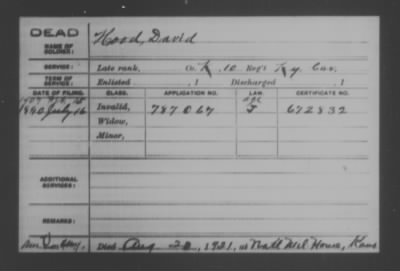 DEAD
NAME OF SOLDIER:
Hood, David
SERVICE:
Late rank, Co. K, 10 Reg't Ky. Cav.
TERM OF SERVICE:
Enlisted , 1 Discharged , 1
DATE OF FILING. CLASS. APPLICATION NO. LAW. CERTIFICATE NO.
1907
1890 July 16 Invalid, 787067 672832
Widow,
Minor,
ADDITIONAL SERVICES:
REMARKS:
Died Aug 20, 1921, at Natl Mil Home, Kans